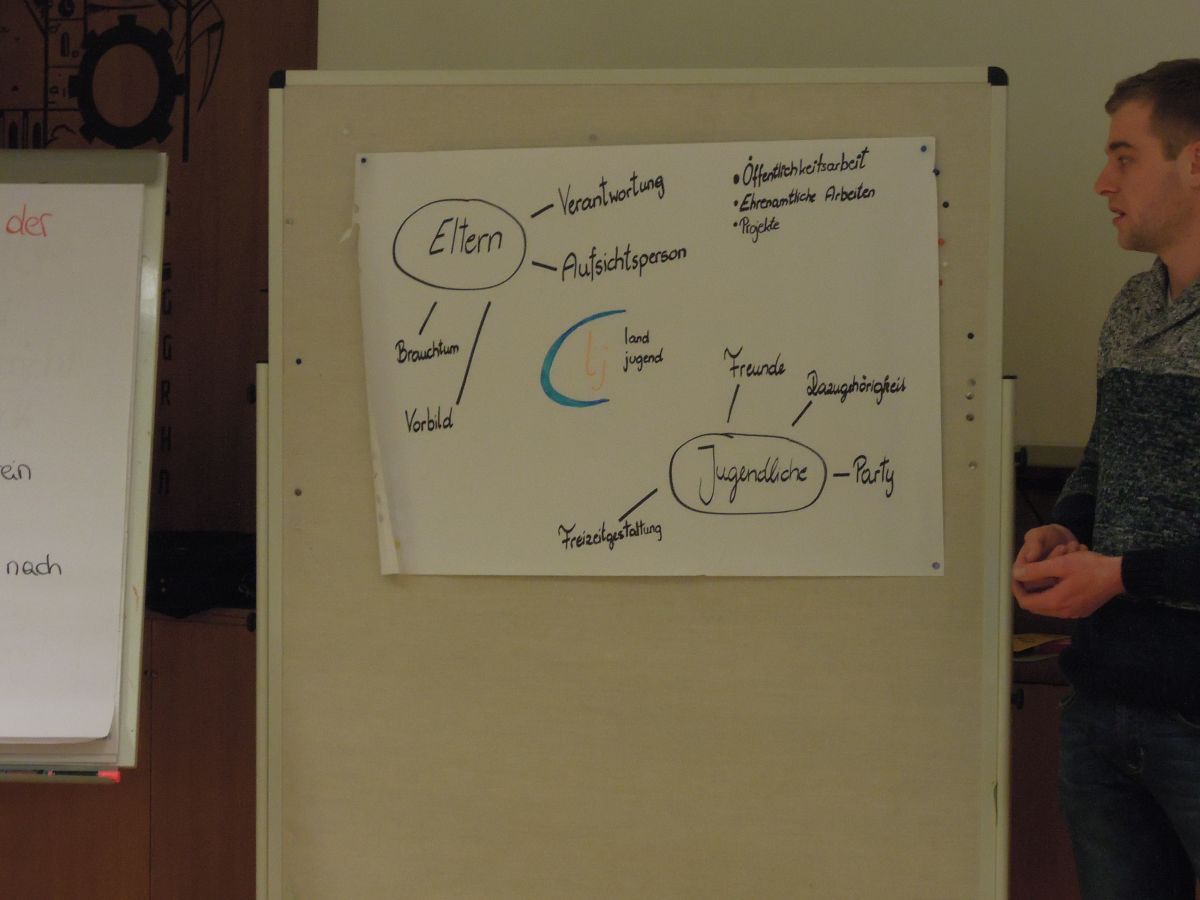 der
ein
nach
Eltern
Verantwortung
Aufsichtsperson
Brauchtum
Vorbild
• Öffentlichkeitsarbeit
• Ehrenamtliche Arbeiten
• Projekte
lj
land
jugend
Freunde
Dazugehörigkeit
Jugendliche
Party
Freizeitgestaltung